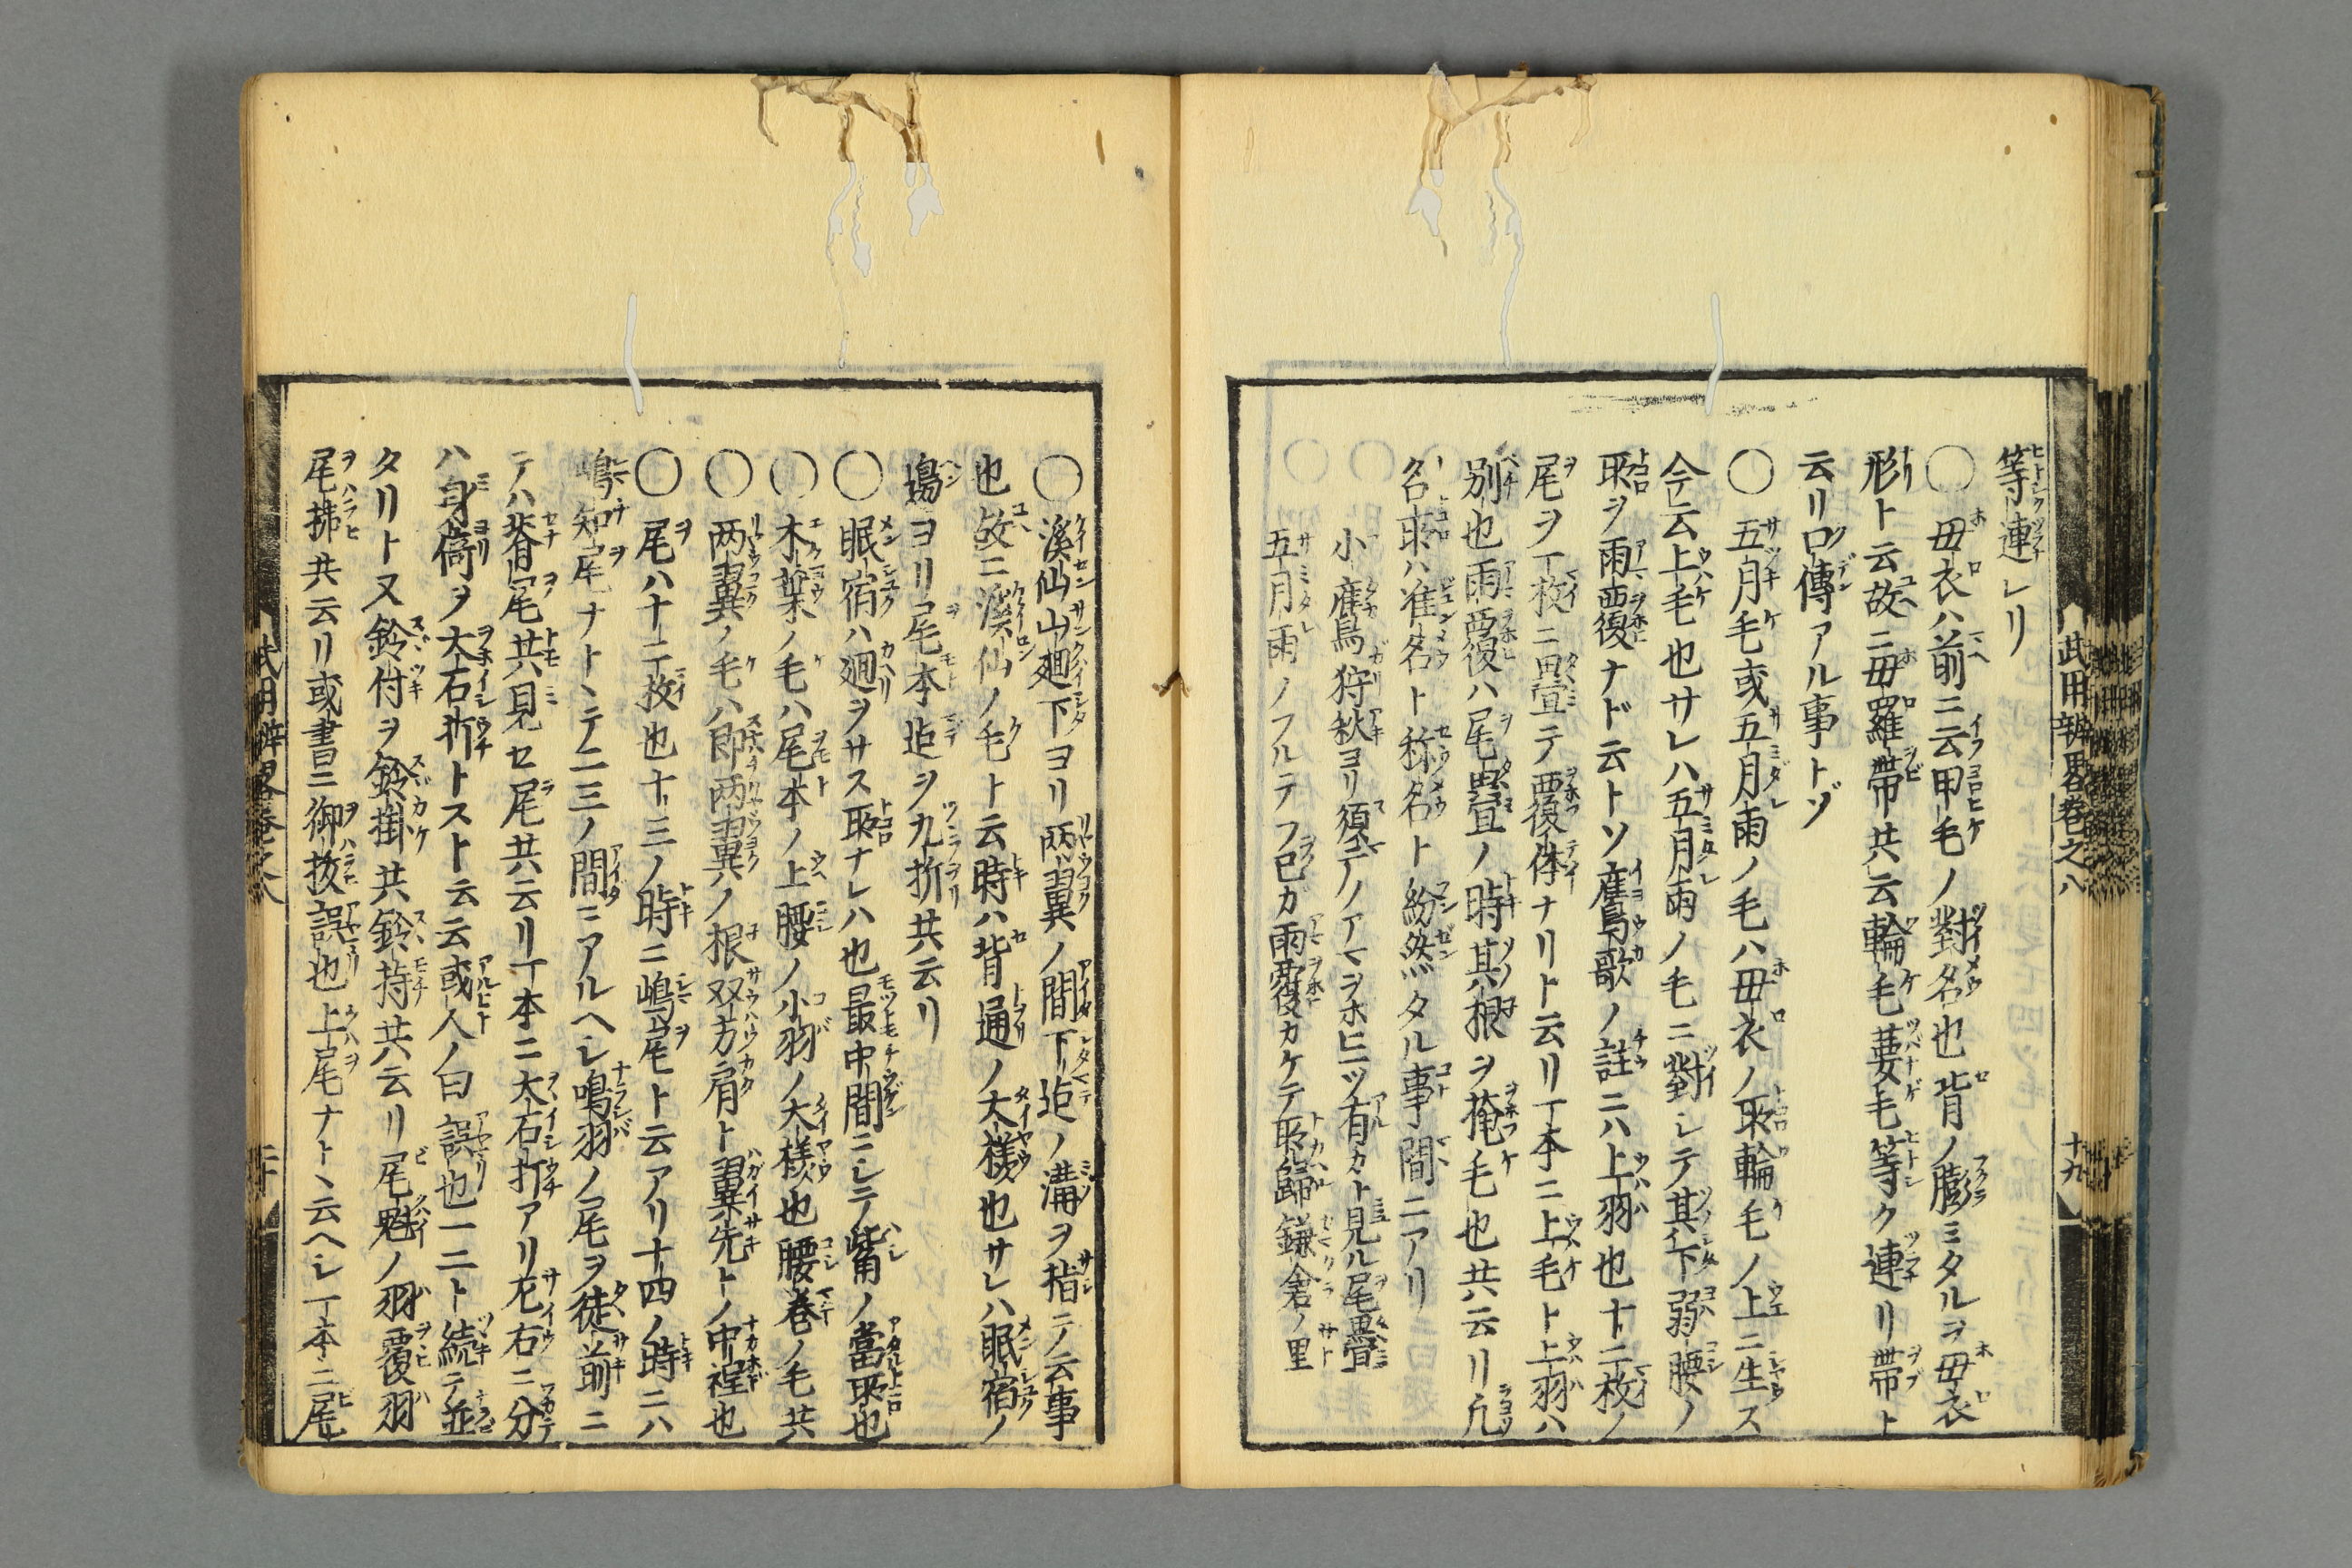 等連レリ
〇毋衣ハ前ニ云甲毛ノ對名也背ノ膨ミタルヲ毋衣
形ト云故ニ毋羅帶共云輪毛蔞毛等ク連リ帶ト
云リ口傳アル事トゾ
〇五月毛或五月雨ノ毛ハ毋衣ノ耴輪毛ノ上ニ生ス
今云上毛也サレハ五月雨ノ毛ニ對レテ其下弱腰ノ
耴ヲ雨覆ナド云トソ鷹歌ノ註ニハ上羽也十二枚ノ
尾ヲ一枚ニ畳テ覆体ナリト云リ一本ニ上毛ト上羽ハ
別也雨覆ハ尾畳ノ時其根ヲ掩毛也共云リ凡
名耴ハ准名ト稱名ト紛然タル事間ニアリ
小鷹狩秋ヨリ須テノアマヲホヒ二ツ有カト見ル尾畳
五月雨ノフルテフ巳カ雨覆カケテ耴歸鎌倉ノ里
武用辨畧巻之八 十九
〇溪仙山廻下ヨリ両翼ノ間下迠ノ溝ヲ指テノ云事
也故ニ溪仙ノ毛ト云時ハ背通ノ大樣也サレハ眠宿ノ
邉ヨリ尾本迠ヲ九折共云リ
〇眠宿ハ廻ヲサス耴ナレハ也最中間ニシテ觜ノ當耴也
〇木葉ノ毛ハ尾本ノ上腰ノ小羽ノ大樣也腰巻ノ毛共
〇両翼ノ毛ハ即両翼ノ根双方肩ト翼先トノ中程也
〇尾ハ十二枚也十三ノ時ニ嶋尾ト云アリ十四ノ時ニハ
嶋知尾ナトヽテ二三ノ間ニアルヘシ鳴羽ノ尾ヲ徒前ニ
テハ背尾共見セ尾共云リ一本ニ大石打アリ左右ニ分
ハ身倚ヲ大石折トスト云云或人ノ曰誤也一二ト続テ並
タリト又鈴付ヲ鈴掛共鈴持共云リ尾魁ノ羽覆羽
尾拂共云リ或書ニ御抜誤也上尾ナトヽ云ヘシ一本ニ尾
武用辨畧巻之八 二十